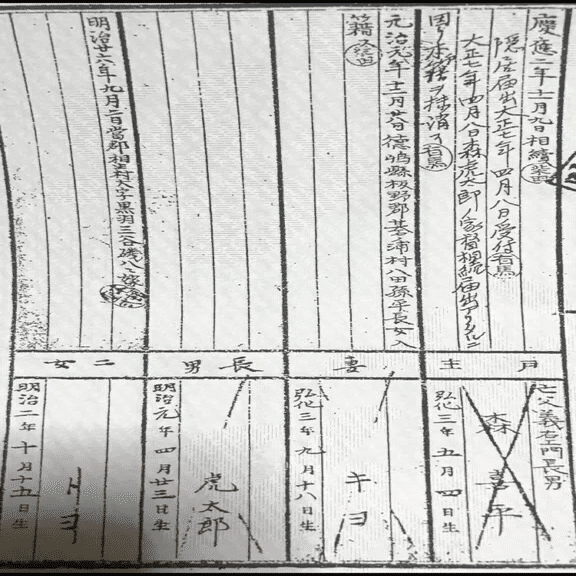 慶應二年十二月九日相續
隠居届出大正七年四月八日受付
大正七年四月八日森虎太郎ノ家督相続届出アリタルニ
因リ本籍ヲ抹消ス
元治元年十二月廿八日徳島縣板野郡基浦村八田孫平長女入
籍ス
明治廿六年九月二日當郡相生村大字黒羽三谷磯八ヘ嫁
戸主
妻
長男
二女
亡父義右エ門長男
森喜平
弘化三年五月四日生
キヨ
弘化三年九月十八日生
虎太郎
明治元年四月廿三日生
トヨ
明治二年十月十五日生